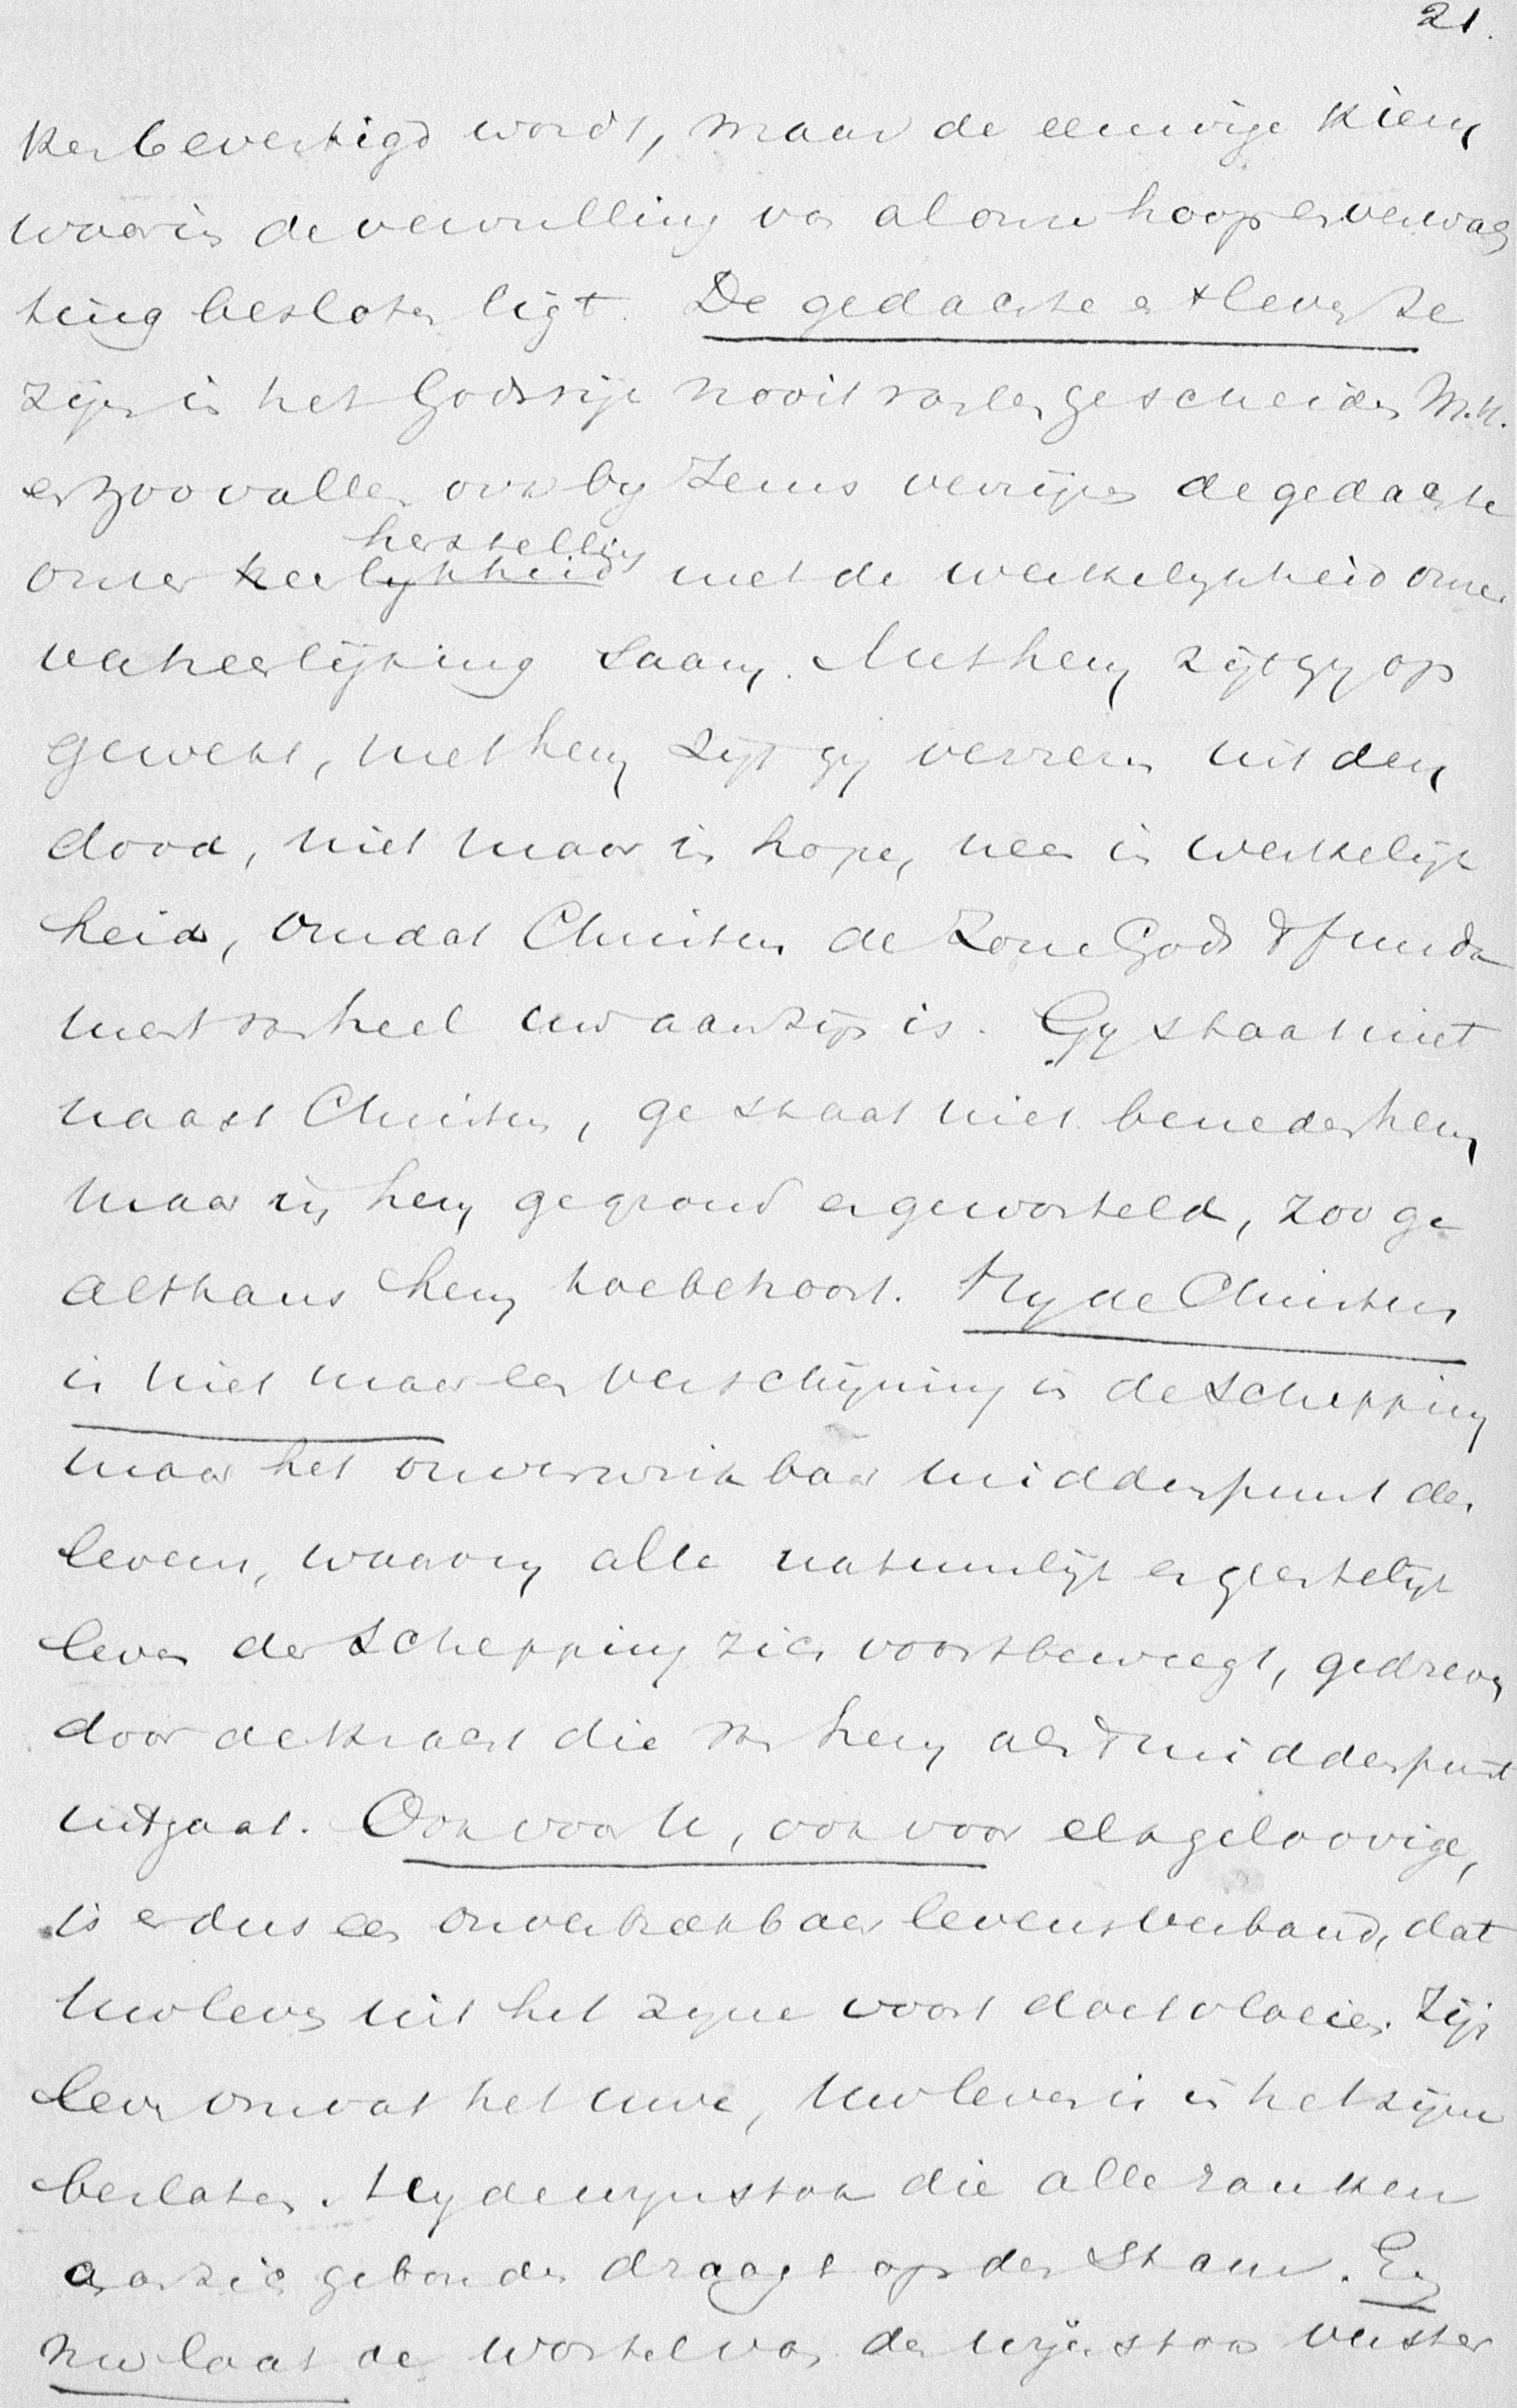 21.
ker bevestigd wordt, maar de eeuwige kiem
waarin de vervulling van al onze hoop en verwach
ting besloten ligt. De gedachte en 't leven ze
zijn in het Godsrijk nooit van een gescheiden M.H.
en zoo vallen ook by Jezus verrijzen de gedachte
herstelling
onzer heerlykheid met de werkelykheid onzer
verheerlijking saam. Met hem zijt gy op
gewekt, met hem zijt gy verrezen uit den
dood, niet maar in hope, neen in werkelijk
heid, omdat Christus de Zone Gods 't funda
ment van heel uw aanzijn is. Gy staat niet
naast Christus, ge staat niet beneden hem
maar in hem gegrond en geworteld, zoo ge
althans hem toebehoort. Hy de Christus
is niet maar een verschijning in de schepping
maar het onverwrikbaar middenpunt des
levens, waarom alle natuurlijk en geestelijk
leven der schepping zich voortbeweegt, gedreven
door de kracht die van hem als 't middenpunt
uitgaat. Ook voor U, ook voor elk geloovige,
is er dus een onverbreekbaar levensverband, dat
Uw leven uit het zyne voort doet vloeien. Zijn
leven omvat het uwe, Uw leven is in het zijne
besloten. Hy de wynstok die alle ranken
aan zich gebonden draagt op den stam. En
nu laat de wortel van den wijnstok vaster